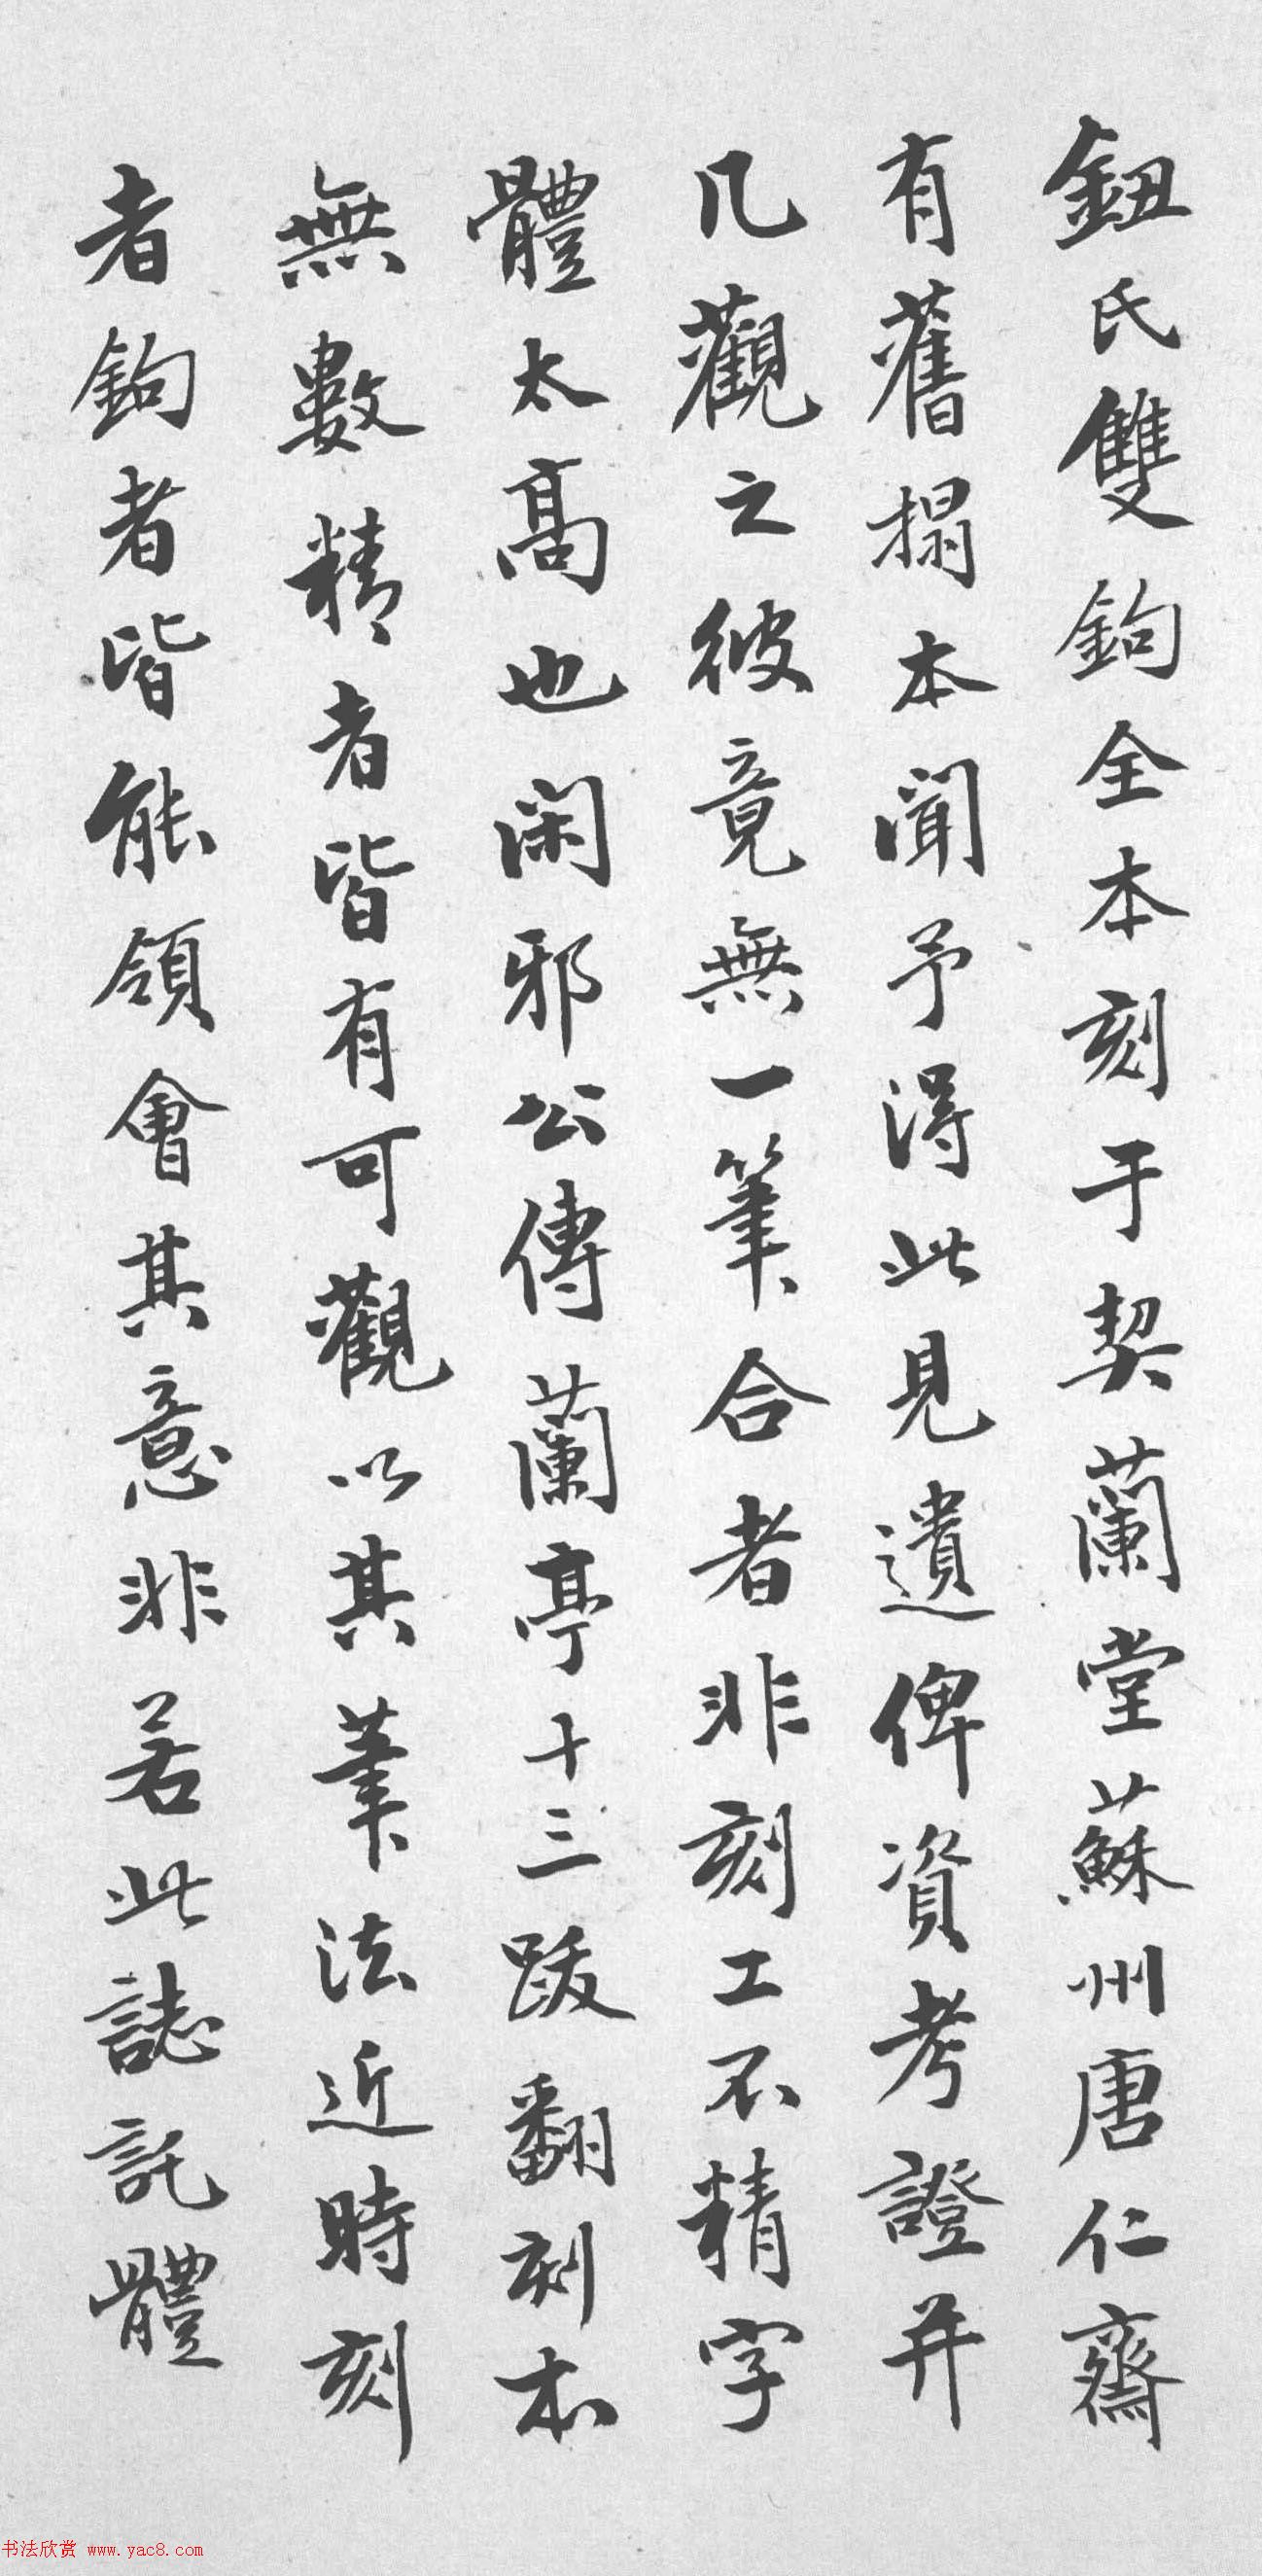 鈕氏雙鉤全本刻于契蘭堂蘇州唐仁齋
有舊搨本聞予得此見遺俾資考證并
几觀之彼竟無一筆合者非刻工不精字
體太高也閑邪公傳蘭亭十三跋翻刻本
無數精者皆有可觀以其筆法近時刻
者鉤者皆能領會其意非若此誌託體
书法欣赏 www.yac8.com